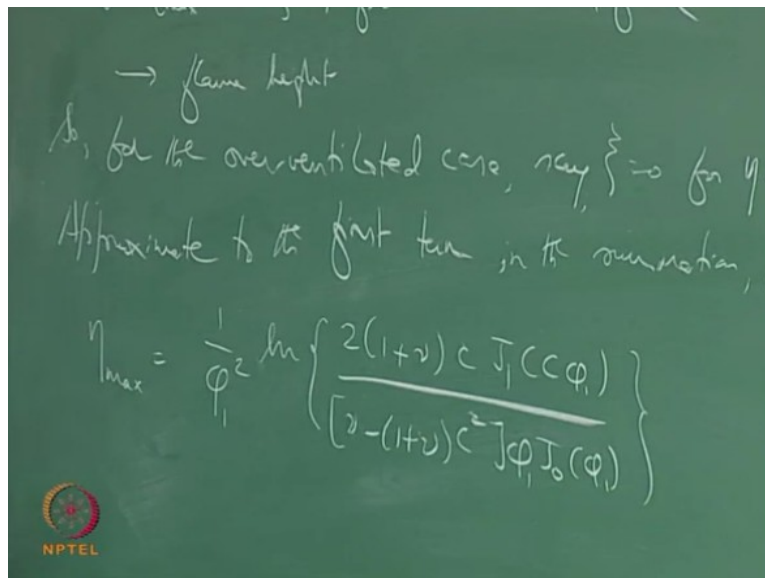 → flame height
So, for the overventilated case, say, ξ=0 for η
Approximate to the first term in the summation,
η_max = 1/φ₁² ln { 2(1+ν) c J₁(cφ₁) / [ν-(1+ν)c²]φ₁J₀(φ₁) }
NPTEL